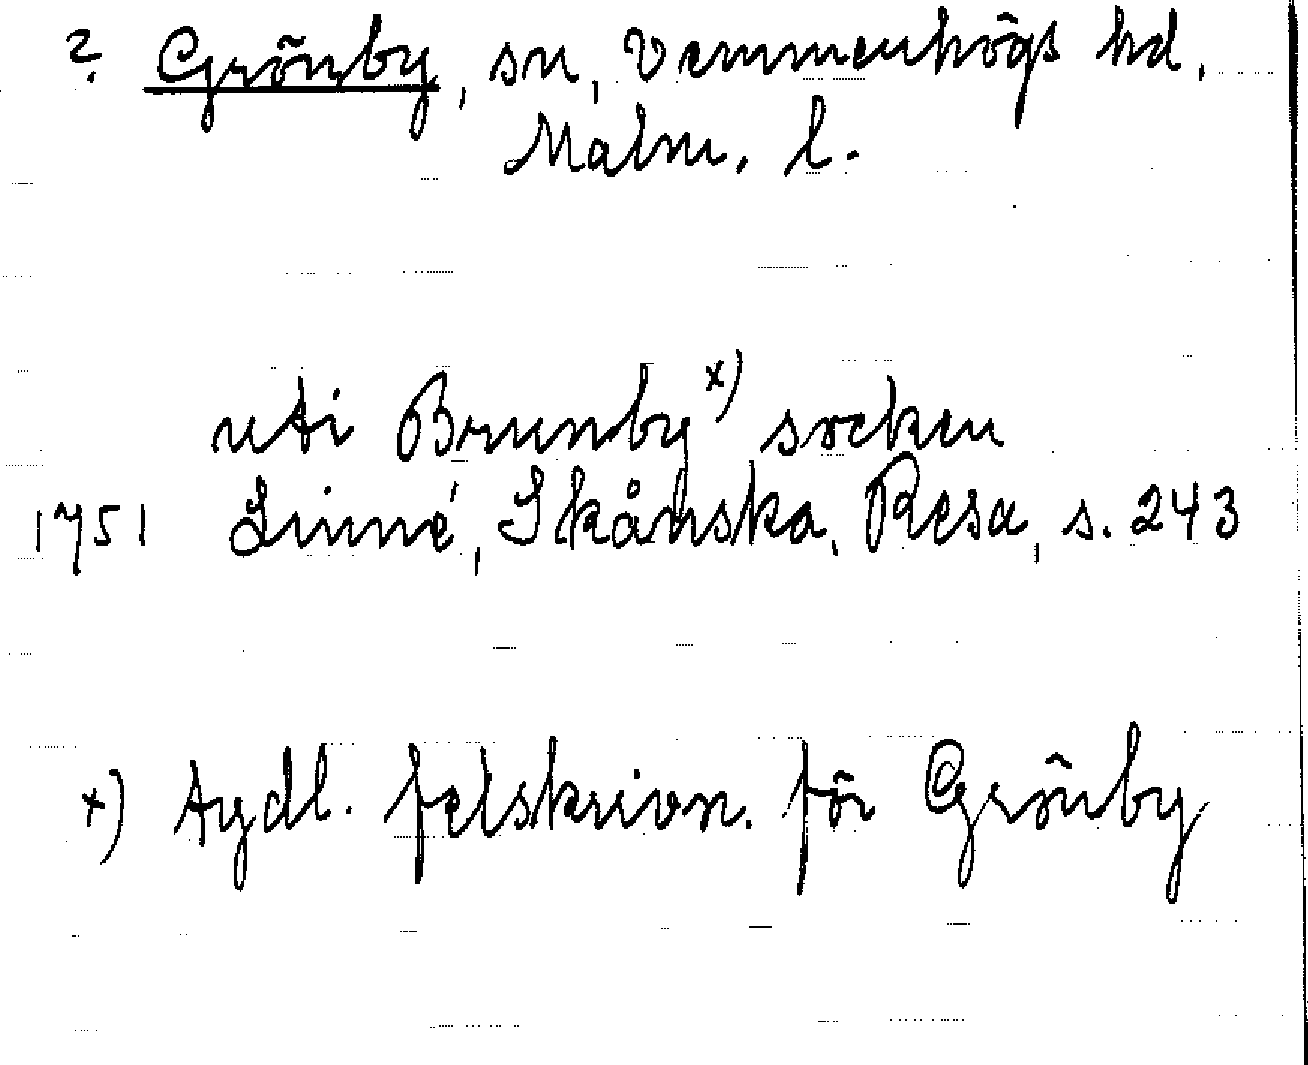 ? Grönby, sn, Vemmenhögs hd,
Malm. l.
uti Brunby x) socken
1751 Linné, Skånska Resa, s. 243
x) tydl. felskrivn. för Grönby